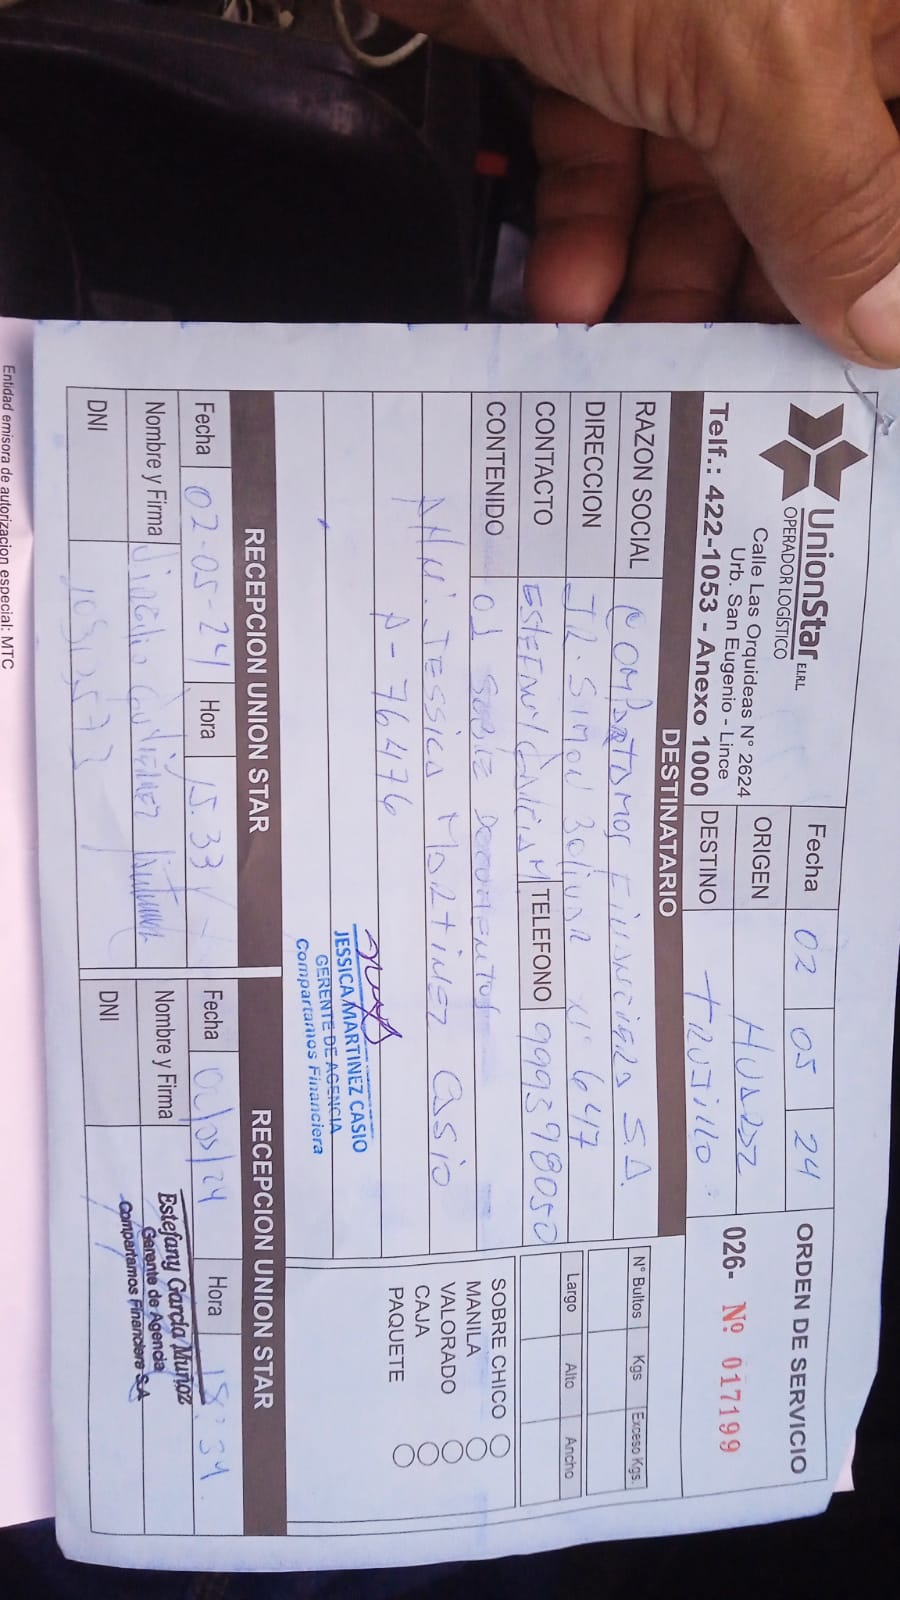 UnionStar E.I.R.L
OPERADOR LOGÍSTICO
Calle Las Orquideas N° 2624
Urb. San Eugenio - Lince
Telf.: 422-1053 - Anexo 1000
Fecha 02 05 24
ORIGEN HUARAZ
DESTINO TRUJILLO
ORDEN DE SERVICIO
026- Nº 017199
DESTINATARIO
RAZON SOCIAL COMPARTAMOS FINANCIERA S.A.
DIRECCION JR. SIMON BOLIVAR N° 647
CONTACTO ESTEFANY GARCIA M TELEFONO 999398050
CONTENIDO 01 SOBRE DOCUMENTOS
JESSICA MARTINEZ CASIO
A-76476
JESSICA MARTINEZ CASIO
GERENTE DE AGENCIA
Compartamos Financiera
N° Bultos Kgs Exceso Kgs.
Largo Alto Ancho
SOBRE CHICO
MANILA
VALORADO
CAJA
PAQUETE
RECEPCION UNION STAR
Fecha 02-05-24 Hora 15:33
Nombre y Firma
DNI
RECEPCION UNION STAR
Fecha /05/24 Hora
Nombre y Firma
Estefany García Muñoz
Gerente de Agencia
Compartamos Financiera S.A
DNI
Entidad emisora de autorizacion especial: MTC